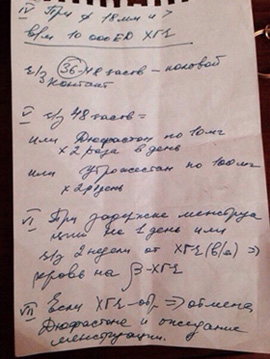 IV При ⌀ 18мм и >
в/м 10 000 ЕД ХГЧ
ч/з 36-48 часов – половой
контакт
V ч/з 48 часов =
или Дюфастон по 10мг
× 2 раза в день
или Утрожестан по 100мг
× 2 р/день
VI При задержке менструа
ции на 1 день или
ч/з 2 недели от ХГЧ (в/м) ⇒
кровь на β-ХГЧ
VII Если ХГЧ-отр. ⇒ отмена
Дюфастона и ожидание
менструации.